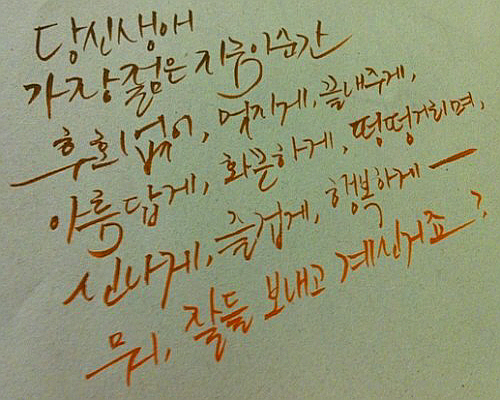 당신생애
가장 젊은 지금이순간
후회없이, 멋지게, 끝내주게,
아름답게, 화끈하게, 떵떵거리며,
신나게, 즐겁게, 행복하게 —
뭐, 잘들 보내고 계신거죠?